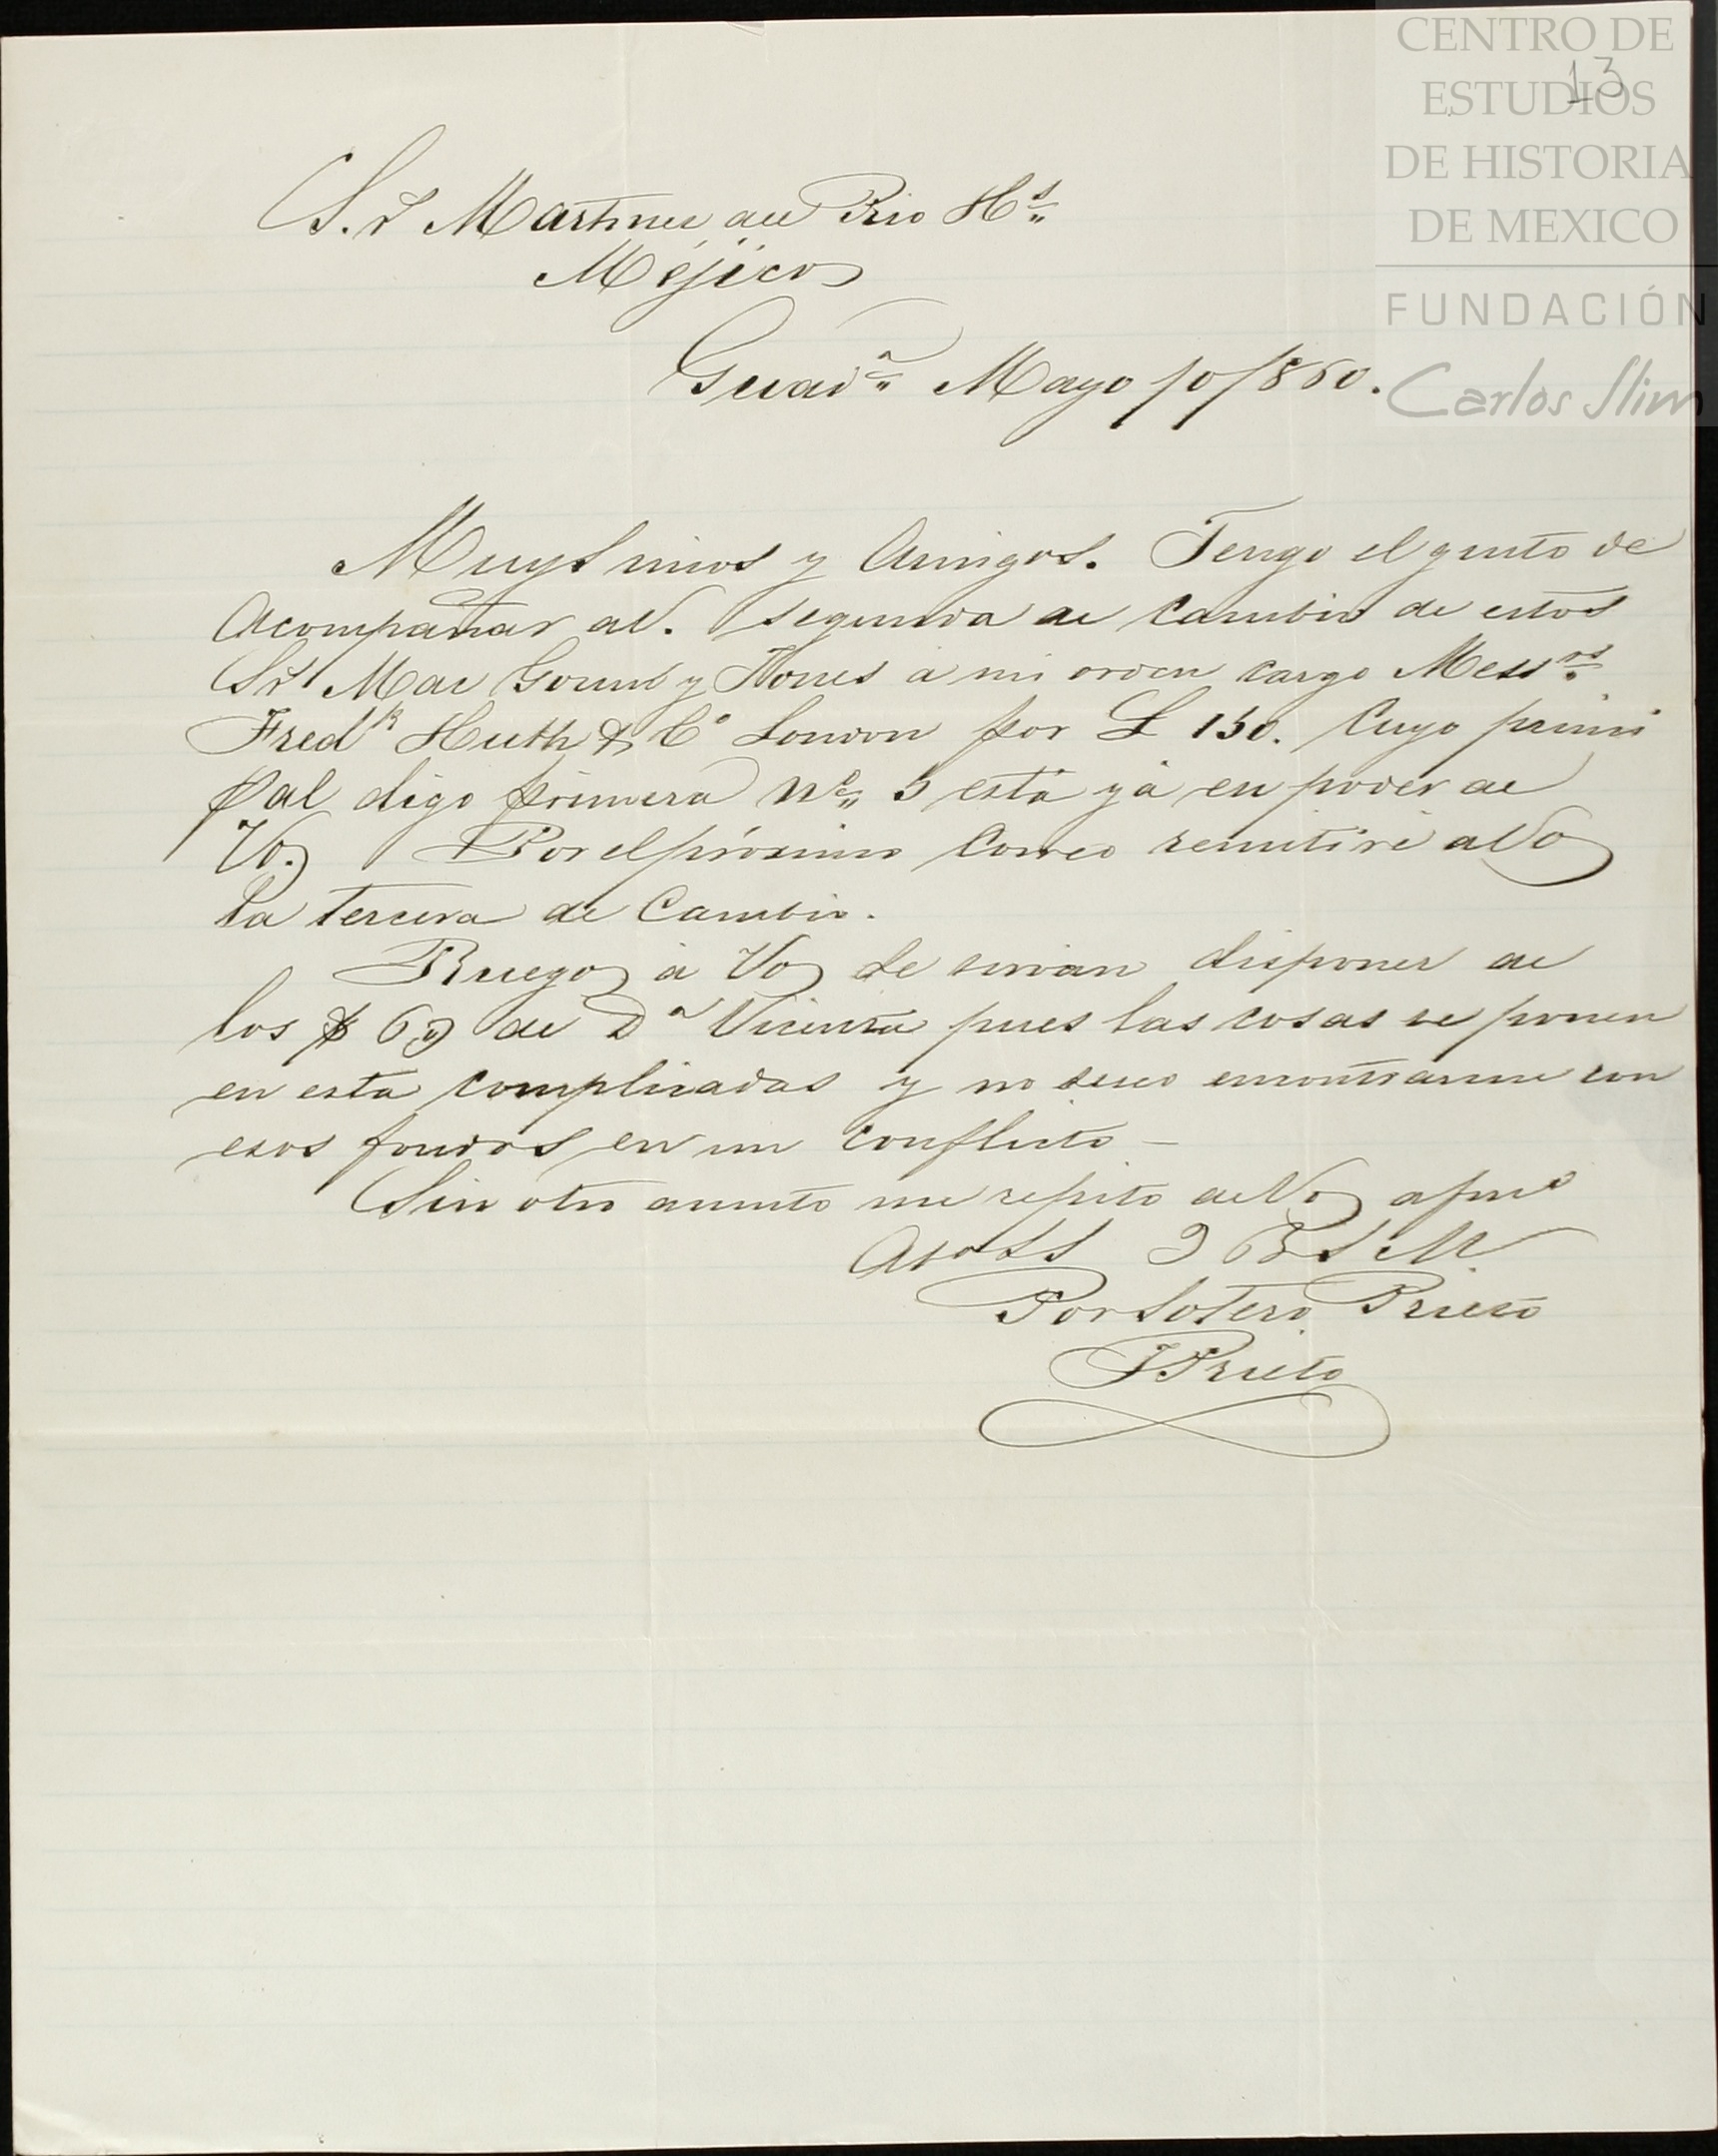 CENTRO DE
ESTUDIOS
DE HISTORIA
DE MEXICO
FUNDACIÓN
Carlos Slim
13
S.S Martinez del Rio Hs
Méjico
Guada Mayo 10/860.
Muy S mios y Amigos. Tengo el gusto de
Acompañar a V. segunda de cambio de estos
SS Mac y Jones á mi orden cargo Messrs
Fredk Huth & Co London por £ 150. Cuyo princi
pal digo primera No 5 está yá en poder de
Vs. Por el próximo Correo remitiré a Vs
la tercera de Cambio.
Ruego á Vs se sirvan disponer de
los $ de Da Vicenta pues las cosas se ponen
en esta complicadas y no deseo encontrarme con
esos fondos en un conflicto -
Sin otro asunto me repito de Vs afmo
Amo SS Q B S M
Por Sotero Prieto
J Prieto